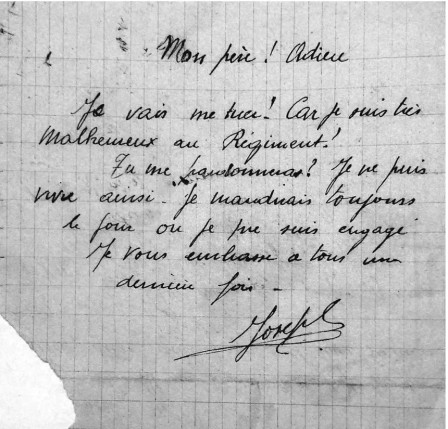 Mon père ! Adieu
Je vais me tuer ! Car je suis très
Malheureux au Régiment !
Tu me pardonneras ? Je ne puis
vivre ainsi. Je maudirais toujours
le jour ou je me suis engagé
Je vous embrasse a tous une
dernière fois -
Joseph